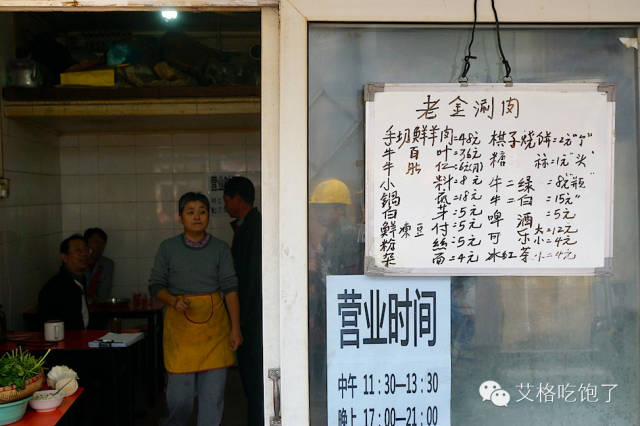 老金涮肉
手切鮮羊肉=48元 棋子烧饼=2元"个"
牛百叶=36元 糖 =1元"头"
牛
小料=8元 牛二绿=8元"瓶"
鍋底=18元 牛二白=15元"
白芽=5元 啤酒=5元
鮮凍豆付=5元 可乐大=12元
粉丝=5元 小=4元
杂面=4元 冰红茶小=4元
营业时间
中午 11:30—13:30
晚上 17:00—21:00
艾格吃饱了